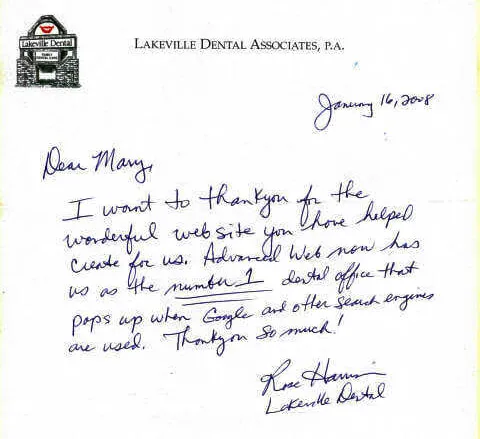 Lakeville Dental
LAKEVILLE DENTAL ASSOCIATES, P.A.
January 16, 2008
Dear Mary,
I want to thankyou for the
wonderful web site you have helped
create for us. Advanced Web now has
us as the number 1 dental office that
pops up when Google and other search engines
are used. Thankyou so much!
Rose Harris
Lakeville Dental